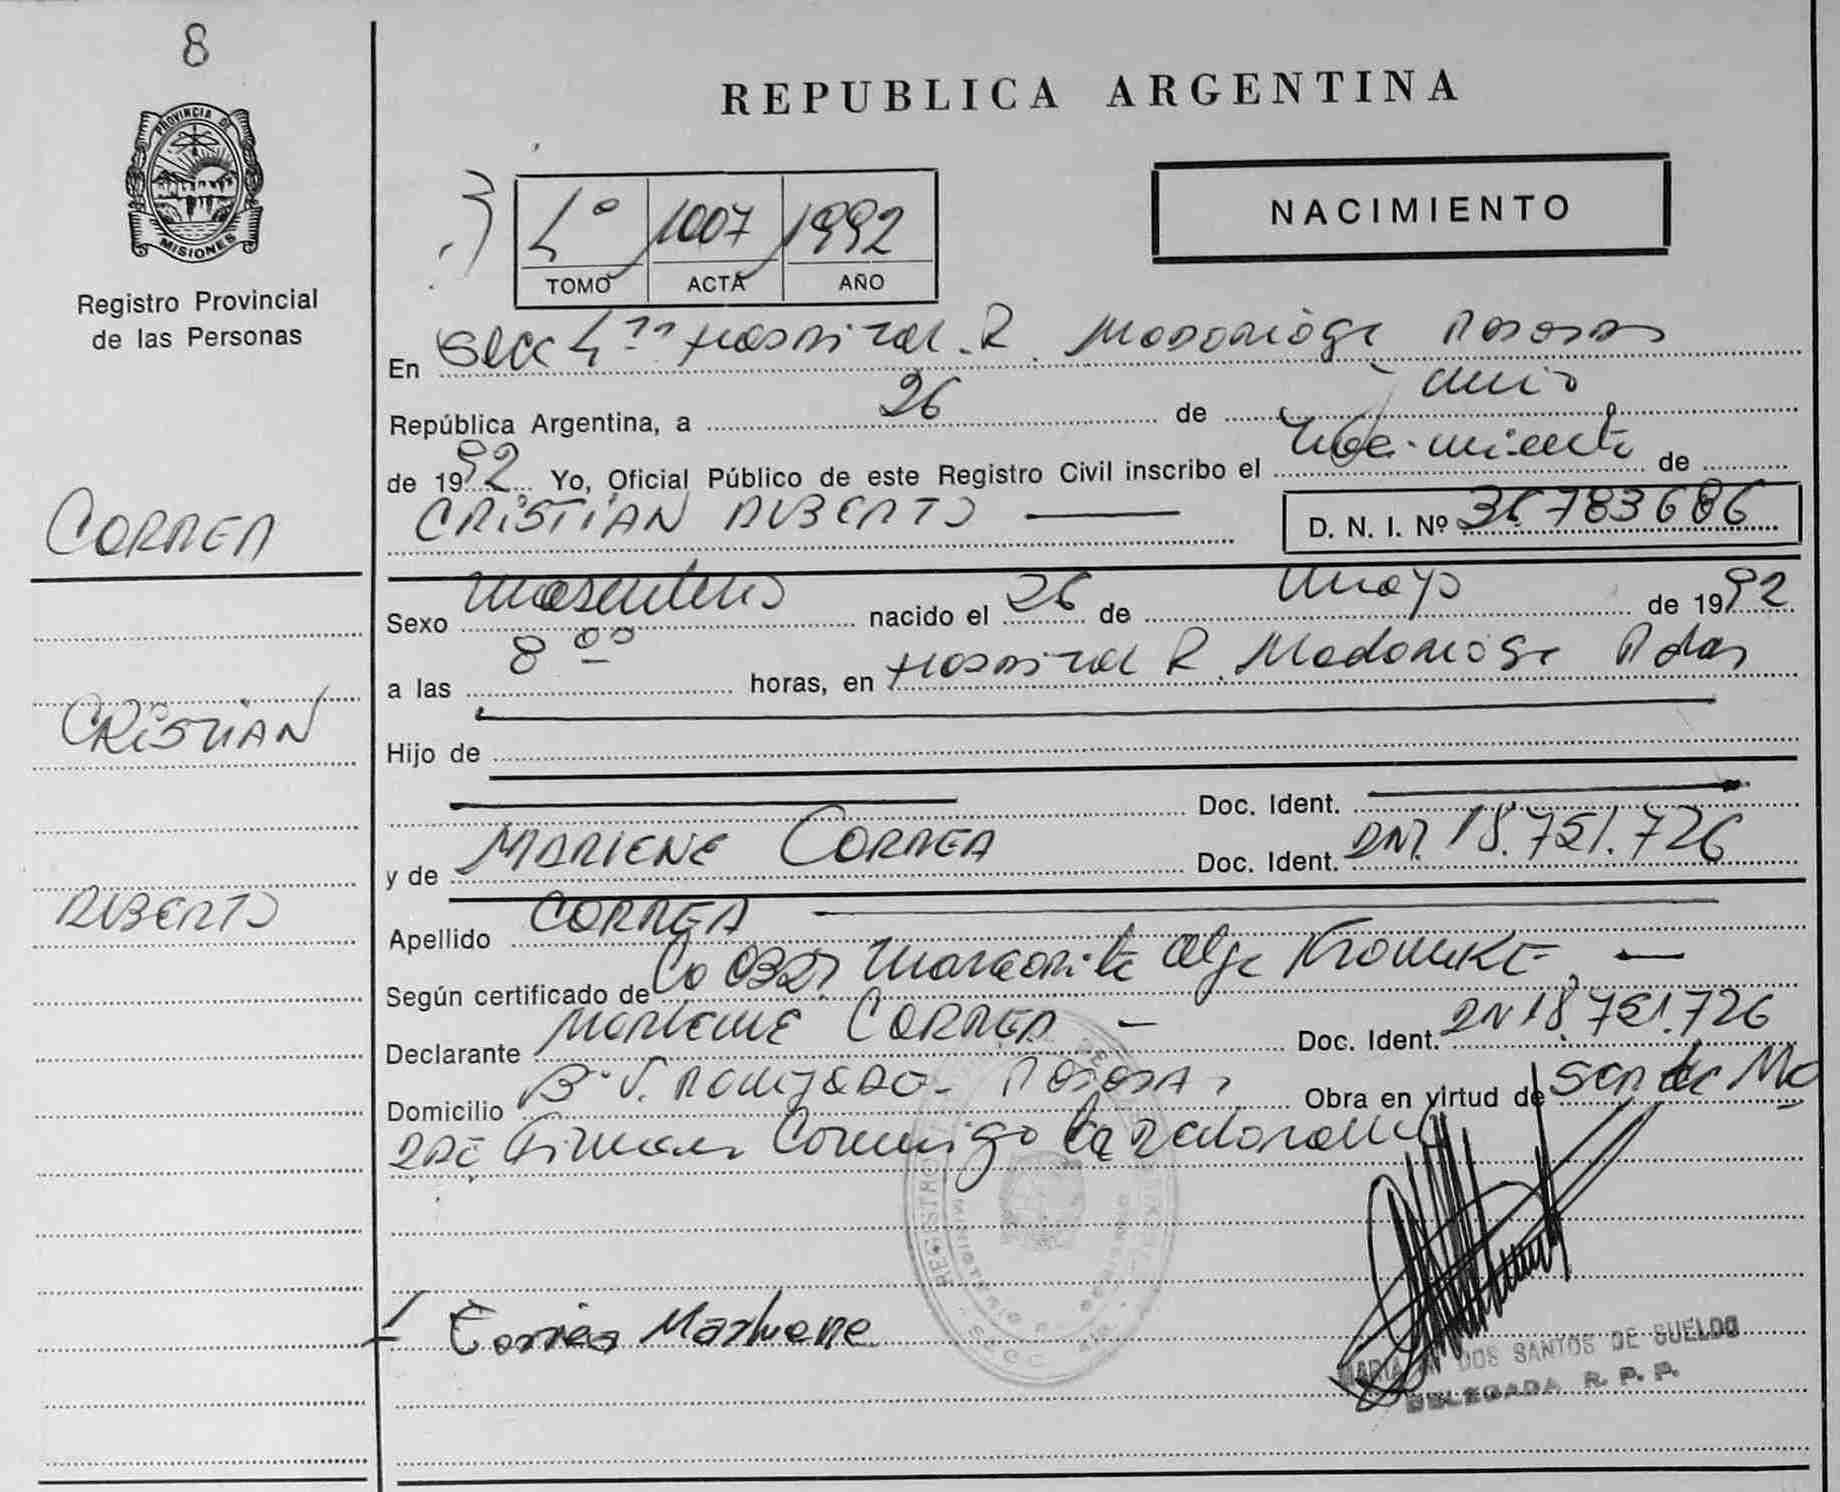 8
REPUBLICA ARGENTINA
PROVINCIA DE
MISIONES
Registro Provincial
de las Personas
1007 1992
TOMO ACTA AÑO
NACIMIENTO
En Secc Hospital R. Madariaga Posadas
República Argentina, a 26 de Junio
de 1992 Yo, Oficial Público de este Registro Civil inscribo el de
CORREA
CRISTIAN ALBERTO D. N. I. Nº 36783686
Sexo Masculino nacido el 26 de Mayo de 1992
a las 8 00 horas, en Hospital R. Madariaga Pdas
CRISTIAN
Hijo de
Doc. Ident.
y de MARLENE CORREA Doc. Ident. DNI. 18.751.726
ALBERTO
Apellido CORREA
Según certificado de Margarita Olga
Declarante MARLENE CORREA - Doc. Ident. DN 18.751.726
Domicilio POSADAS Obra en virtud de
Firman Conmigo la declarante
Correa Marlene
MARIA DOS SANTOS DE SUELDO
DELEGADA R. P. P.